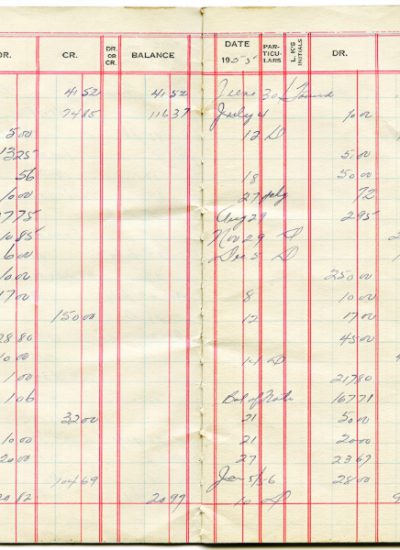 DR. CR. DR. OR CR. BALANCE
41 52 41 52
74 85 116 37
5 00
13 25
56
10 00
77 75
10 85
6 00
10 00
17 00
150 00
28 80
10 00
1 00
1 06
32 00
10 00
20 00
104 69
20 82 20 97
DATE 1955 PAR-TICU-LARS L. K'S INITIALS DR.
30
July 4 1 00
12 D
5 00
18 50 00
27 72
Aug 29 2 95
Nov 29 D
Dec 5 D
250 00
8 10 00
12 17 00
45 00
D
217 80
Bal of Note 167 71
21 50 00
21 20 00
27 23 67
Jan 5/56 28 00
10 D